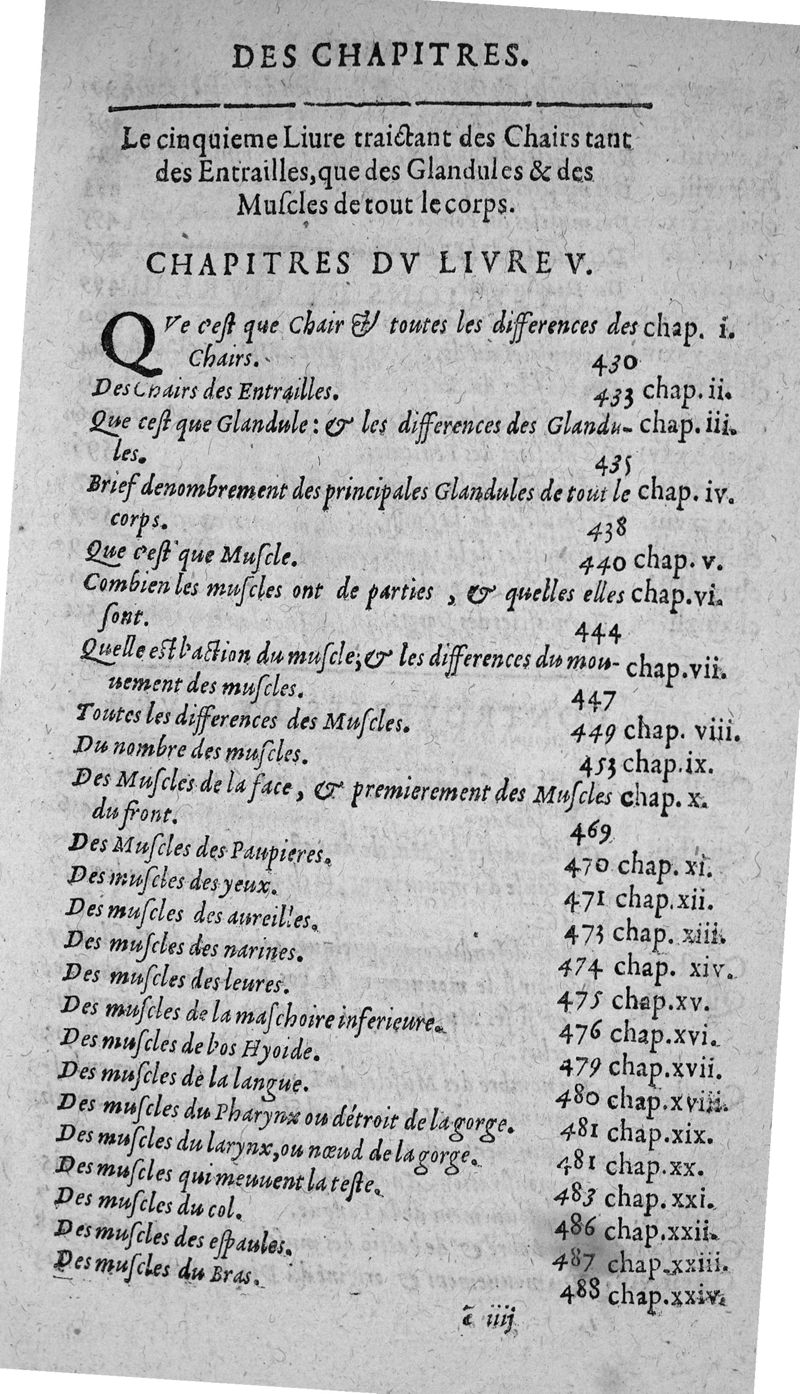 DES CHAPITRES.
Le cinquieme Liure traictant des Chairs tant
des Entrailles, que des Glandules & des
Muſcles de tout le corps.
CHAPITRES DV LIVRE V.
QVe c'eſt que Chair & toutes les differences des chap. i.
Chairs. 430
Des Chairs des Entrailles. 433 chap. ii.
Que ceſt que Glandule : & les differences des Glandu- chap. iii.
les. 435
Brief denombrement des principales Glandules de tout le chap. iv.
corps. 438
Que c'eſt que Muſcle. 440 chap. v.
Combien les muſcles ont de parties , & quelles elles chap. vi.
ſont. 444
Quelle est l'action du muſcle; & les differences du mou- chap. vii.
uement des muſcles. 447
Toutes les differences des Muſcles. 449 chap. viii.
Du nombre des muſcles. 453 chap. ix.
Des Muſcles de la face, & premierement des Muſcles chap. x.
du front. 469
Des Muſcles des Paupieres. 470 chap. xi.
Des muſcles des yeux. 471 chap. xii.
Des muſcles des aureilles. 473 chap. xiii.
Des muſcles des narines. 474 chap. xiv.
Des muſcles des leures. 475 chap. xv.
Des muſcles de la maſchoire inferieure. 476 chap. xvi.
Des muſcles de l'os Hyoide. 479 chap. xvii.
Des muſcles de la langue. 480 chap. xviii.
Des muſcles du Pharynx ou détroit de la gorge. 481 chap. xix.
Des muſcles du larynx, ou nœud de la gorge. 481 chap. xx.
Des muſcles qui meuuent la teſte. 483 chap. xxi.
Des muſcles du col. 486 chap. xxii.
Des muſcles des eſpaules. 487 chap. xxiii.
Des muſcles du Bras. 488 chap. xxiv.
ē iiij